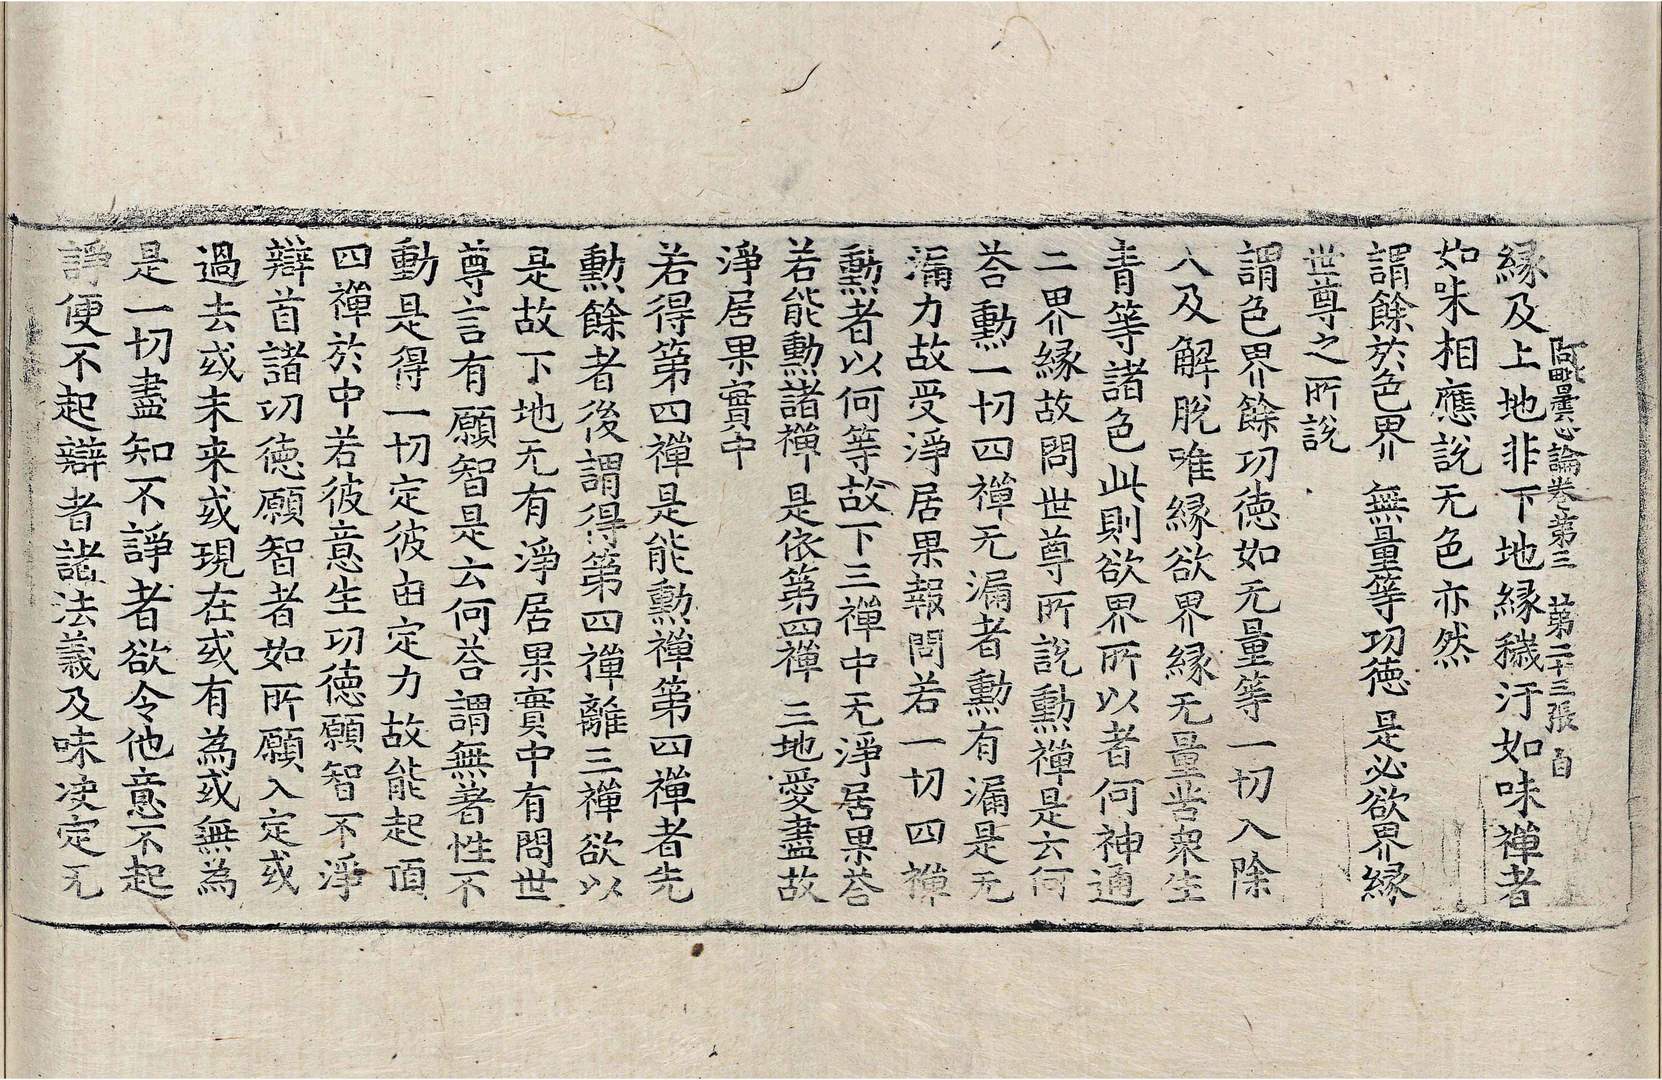 阿毗曇心論卷第三　第二十三張　自
縁及上地非下地縁穢汙如味禪者
如味相應說无色亦然
謂餘於色界　無量等功德　是必欲界縁
世尊之所說
謂色界餘功德如无量等一切入除
入及解脫唯縁欲界縁无量苦衆生
青等諸色此則欲界所以者何神通
二界縁故問世尊所說勳禪是云何
荅勳一切四禪无漏者勳有漏是无
漏力故受淨居果報問若一切四禪
勳者以何等故下三禪中无淨居果荅
若能勳諸禪　是依第四禪　三地愛盡故
淨居果實中
若得第四禪是能勳禪第四禪者先
勳餘者後謂得第四禪離三禪欲以
是故下地无有淨居果實中有問世
尊言有願智是云何荅謂無著性不
動是得一切定彼由定力故能起頂
四禪於中若彼意生功德願智不淨
辯首諸功德願智者如所願入定或
過去或未来或現在或有為或無為
是一切盡知不諍者欲令他意不起
諍便不起辯者諸法義及味决定无